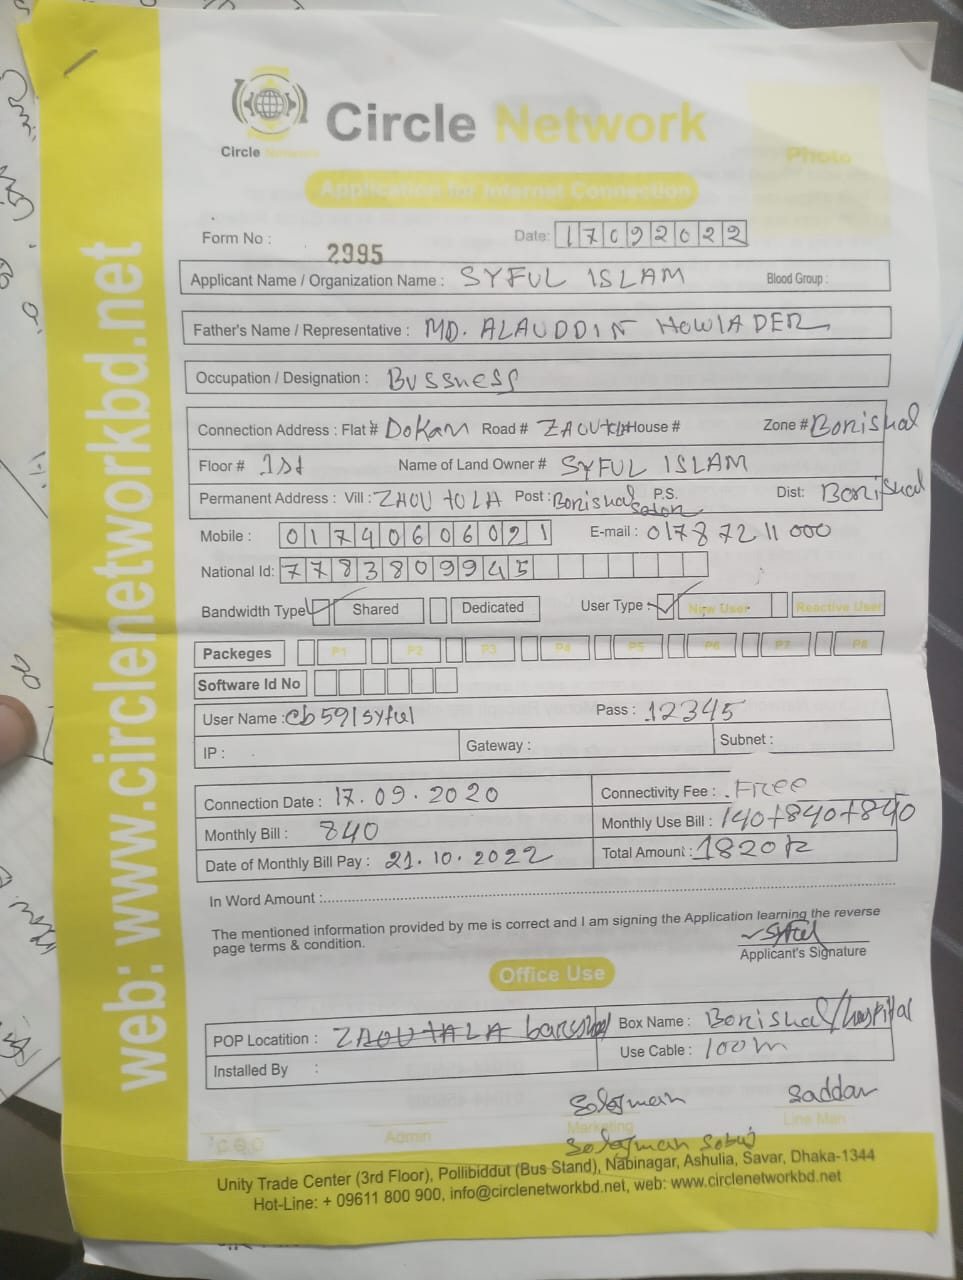 web: www.circlenetworkbd.net
Circle Network
Circle Network
Photo
Application for Internet Connection
Form No : 2995 Date: 17092022
Applicant Name / Organization Name : SYFUL ISLAM Blood Group :
Father's Name / Representative : MD. ALAUDDIN HOWLADER
Occupation / Designation : Bussness
Connection Address : Flat # Dokan Road # House # Zone # Borishal
Floor # 1st Name of Land Owner # SYFUL ISLAM
Permanent Address : Vill : ZAOUTOLA Post : Borishal P.S. Dist: Borishal
Mobile : 01740606021 E-mail : 01787211000
National Id: 7783809945
Bandwidth Type Shared Dedicated User Type : New User Reactive User
Packeges P1 P2 P3 P4 P5 P6 P7 P8
Software Id No
User Name : cb591syful Pass : 12345
IP : Gateway : Subnet :
Connection Date : 17.09.2020 Connectivity Fee : Free
Monthly Bill : 840 Monthly Use Bill : 140+840+840
Date of Monthly Bill Pay : 21.10.2022 Total Amount : 1820
In Word Amount :
The mentioned information provided by me is correct and I am signing the Application learning the reverse
page terms & condition.
Syful
Applicant's Signature
Office Use
POP Locatition : ZAOUTALA Box Name : Borishal/hospital
Installed By : Use Cable : 100m
Saddam
C.E.O Admin Marketing Line Man
Unity Trade Center (3rd Floor), Pollibiddut (Bus Stand), Nabinagar, Ashulia, Savar, Dhaka-1344
Hot-Line: + 09611 800 900, info@circlenetworkbd.net, web: www.circlenetworkbd.net